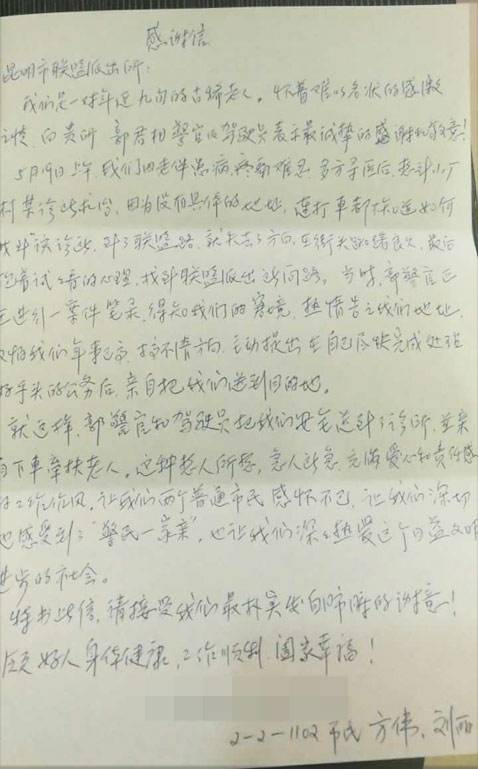 感谢信
昆明市联盟派出所：
我们是一对年近九旬的古稀老人。怀着难以名状的感激
之情向贵所郭君相警官和驾驶员表示最诚挚的感谢和敬意！
5月19日上午，我们因老伴患病，疼痛难忍，多方寻医后，想到小厂
村某诊所就治，因为没有具体的地址，连打车都不知道如何
找到该诊所，到了联盟路，就失去了方向，在街头踟蹰良久，最后
抱着试一试的心理，找到联盟派出所问路。当时，郭警官正
在进行一案件笔录，得知我们的窘境，热情告之我们地址，
又怕我们年事已高，搞不清方向，主动提出在自己尽快完成处理
好手头的公务后，亲自把我们送到目的地。
就这样，郭警官和驾驶员把我们安全送到了诊所，并亲
自下车牵扶老人，这种想人所想，急人所急，充满爱心和责任感
的工作作风，让我们两个普通市民感怀不已，让我们深切
地感受到了“警民一家亲”，也让我们深深热爱这个日益文明
进步的社会。
特书此信，请接受我们最朴实发自肺腑的谢意！
愿好人身体健康，工作顺利，阖家幸福！
2-2-1102 市民 方伟、刘丽